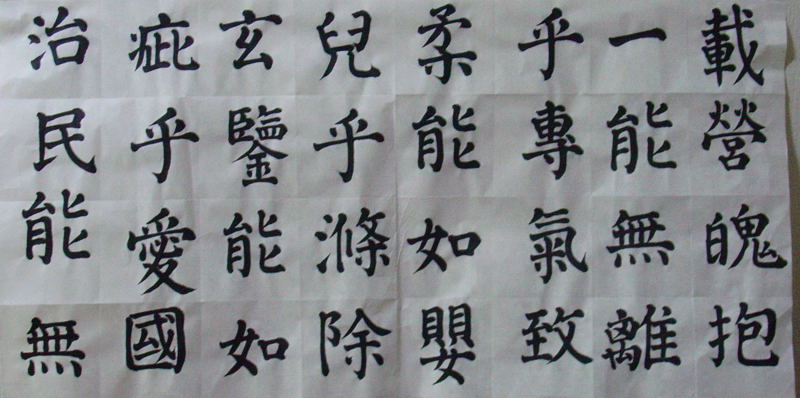 載營魄抱
一能無離
乎專氣致
柔能如嬰
兒乎滌除
玄鑒能如
疵乎愛國
治民能無